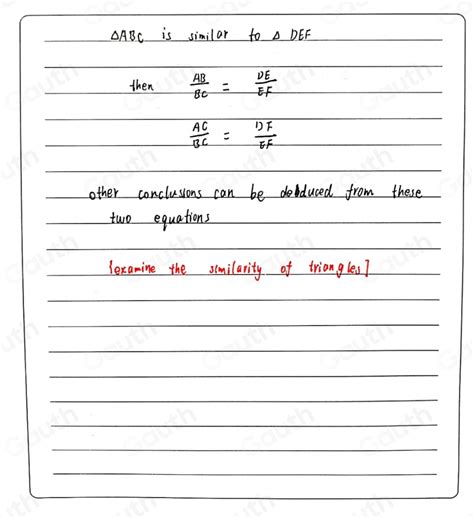 △ABC is similar to △ DEF
then AB/BC = DE/EF
AC/BC = DF/EF
other conclusions can be deduced from these
two equations
[examine the similarity of triangles]
Gauth